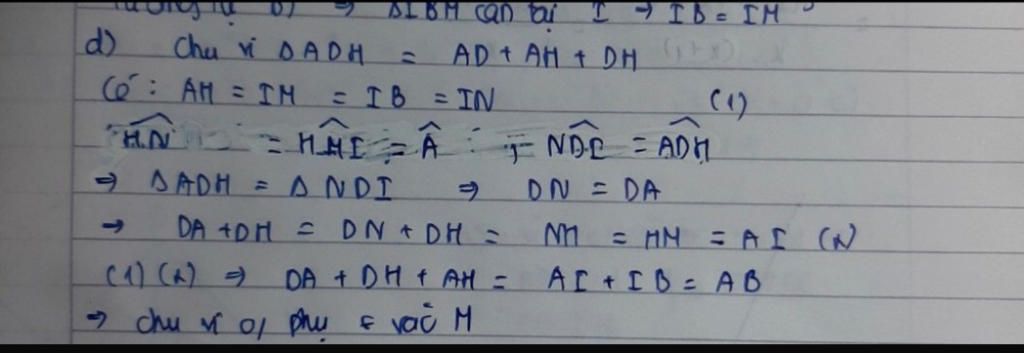 b) ⇒ ΔIBM cân tại I → IB = IM
d) Chu vi ΔADH = AD + AH + DH
Có: AH = IM = IB = IN (1)
= Â ; NDI = ADH
⇒ ΔADH = ΔNDI ⇒ DN = DA
→ DA + DH = DN + DH = NH = HM = AI (2)
(1)(2) ⇒ DA + DH + AH = AI + IB = AB
⇒ chu vi 0/ phụ ∈ vào M